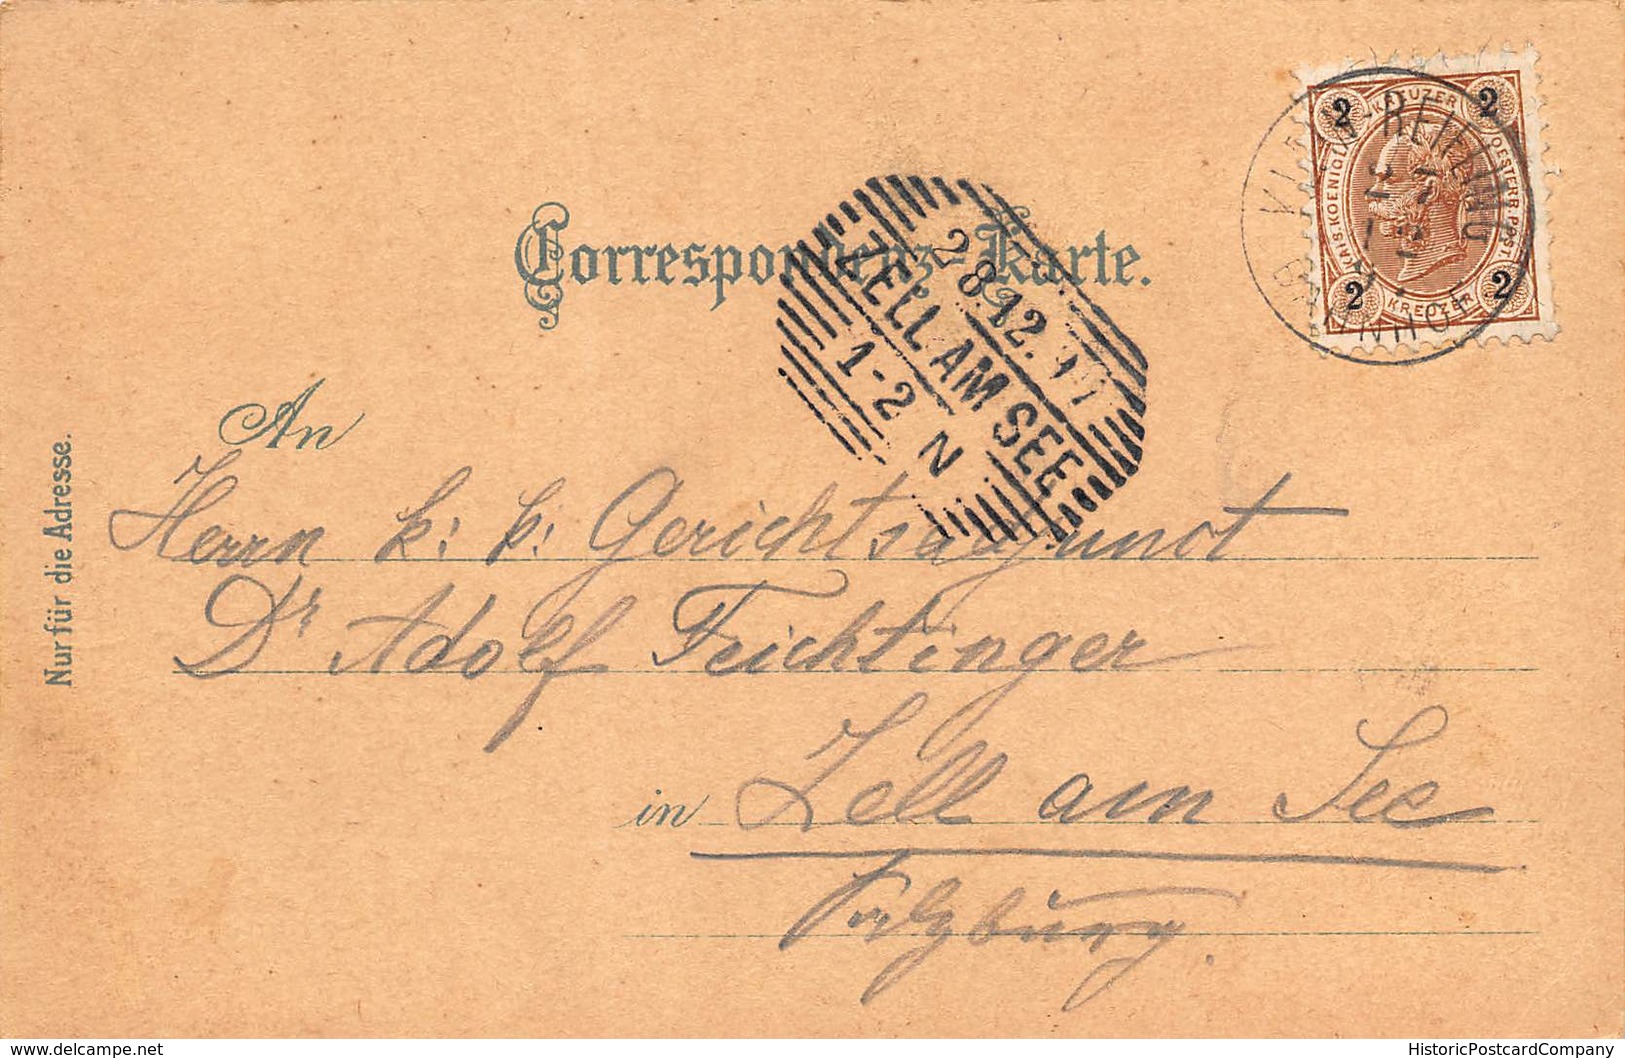 Correspondenz-Karte.
KLEIN-REIFLING
BAHNHOF
2 KREUZER 2
KAIS. KOENIGL.
OESTERR. POST.
2 KREUZER 2
28 12.
ZELL AM SEE
1-2 N
An
Herrn k: k: Gerichtsadjunct
Dr Adolf Feichtinger
in Zell am See
Salzburg.
Nur für die Adresse.
delcampe.net
HistoricPostcardCompany